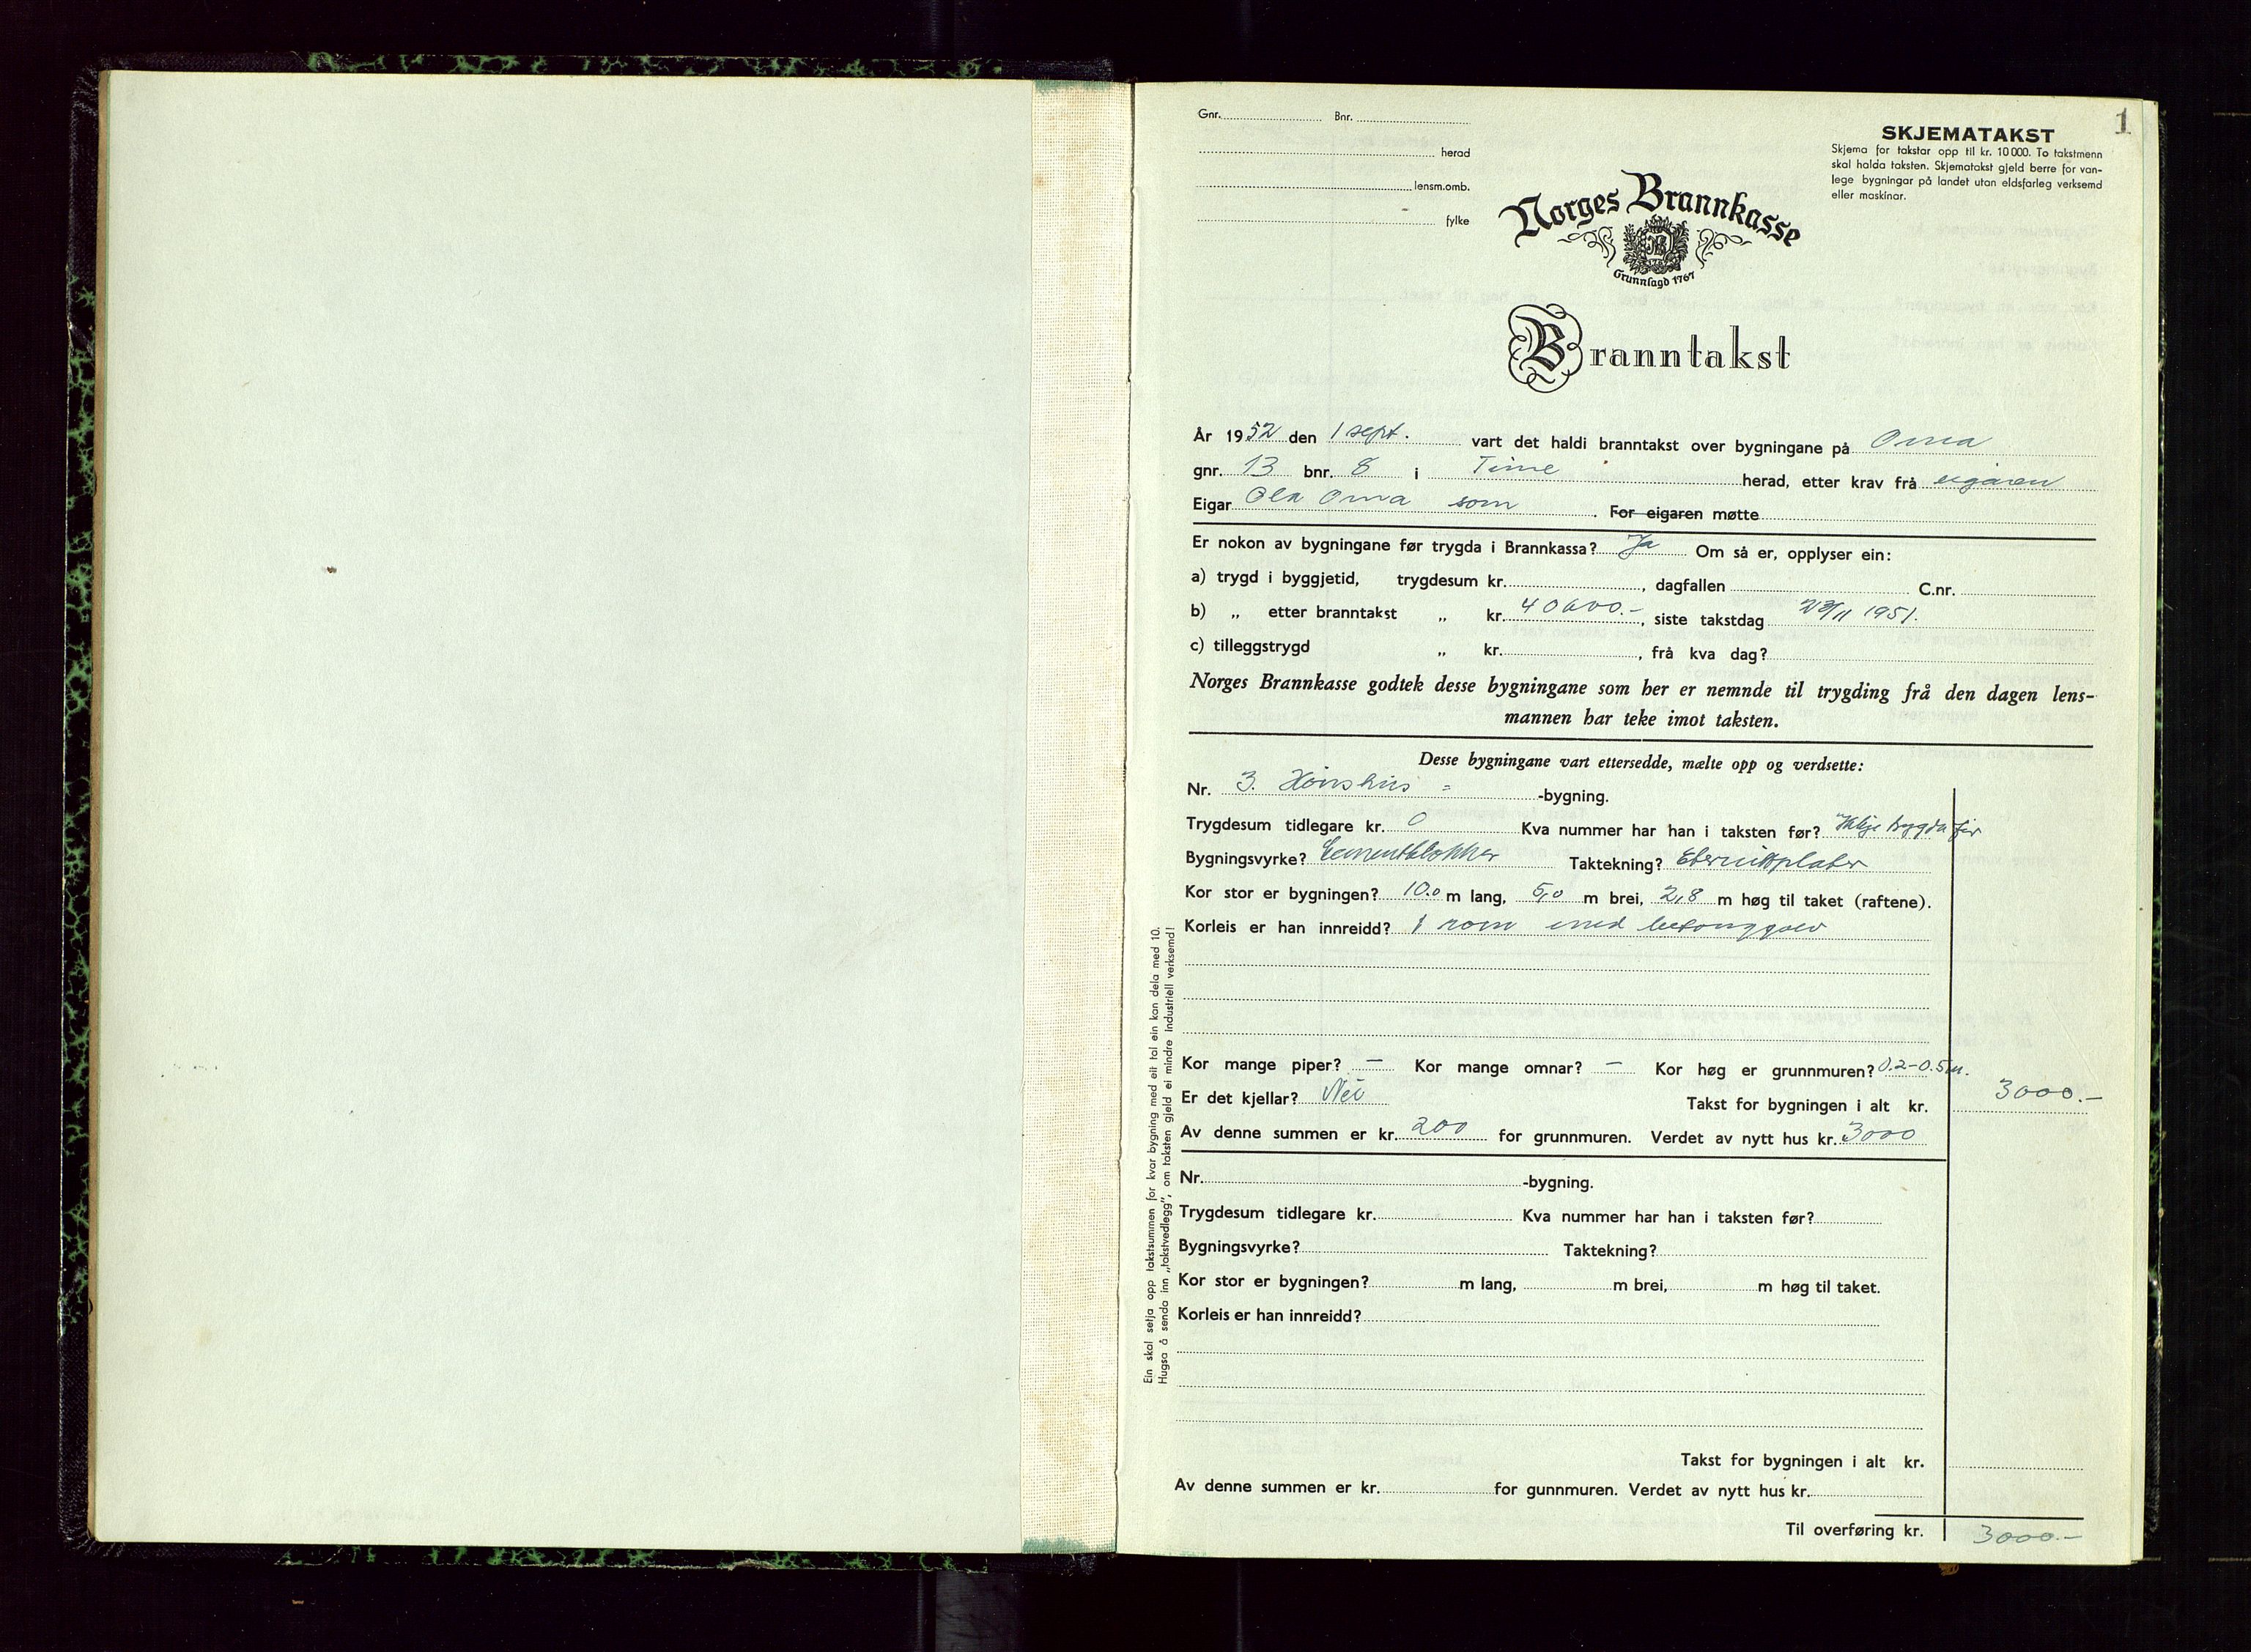 1
Gnr. Bnr.
herad
lensm.omb.
fylke
SKJEMATAKST
Skjema for takstar opp til kr. 10 000. To takstmenn
skal halda taksten. Skjematakst gjeld berre for van-
lege bygningar på landet utan eldsfarleg verksemd
eller maskinar.
Norges Brannkasse
Grunnlagd 1767
Branntakst
År 1952 den 1 sept. vart det haldi branntakst over bygningane på Oma
gnr. 13 bnr. 8 i Time herad, etter krav frå eigaren
Eigar Ola Oma som . For eigaren møtte
Er nokon av bygningane før trygda i Brannkassa? Ja Om så er, opplyser ein:
a) trygd i byggjetid, trygdesum kr. , dagfallen C.nr.
b) „ etter branntakst „ kr. 40600.- , siste takstdag 23/11 1951.
c) tilleggstrygd „ kr. , frå kva dag?
Norges Brannkasse godtek desse bygningane som her er nemnde til trygding frå den dagen lens-
mannen har teke imot taksten.
Desse bygningane vart ettersedde, mælte opp og verdsette:
Nr. 3. Hönshus = -bygning.
Trygdesum tidlegare kr. 0 Kva nummer har han i taksten før? Ikkje bygda før
Bygningsvyrke? Cementblokker Taktekning? Eternittplater
Kor stor er bygningen? 10.0 m lang, 5,0 m brei, 2,8 m høg til taket (raftene).
Korleis er han innreidd? 1 rom med betonggolv
Kor mange piper? — Kor mange omnar? — Kor høg er grunnmuren? 0.2-0.5m.
Er det kjellar? Nei Takst for bygningen i alt kr. 3000.-
Av denne summen er kr. 200 for grunnmuren. Verdet av nytt hus kr. 3000
Nr. -bygning.
Trygdesum tidlegare kr. Kva nummer har han i taksten før?
Bygningsvyrke? Taktekning?
Kor stor er bygningen? m lang, m brei, m høg til taket.
Korleis er han innreidd?
Takst for bygningen i alt kr.
Av denne summen er kr. for gunnmuren. Verdet av nytt hus kr.
Til overføring kr. 3000.-
Ein skal setja opp takstsummen for kvar bygning med eit tal ein kan dela med 10.
Hugsa å senda inn „takstvedlegg", om taksten gjeld ei mindre industriell verksemd!